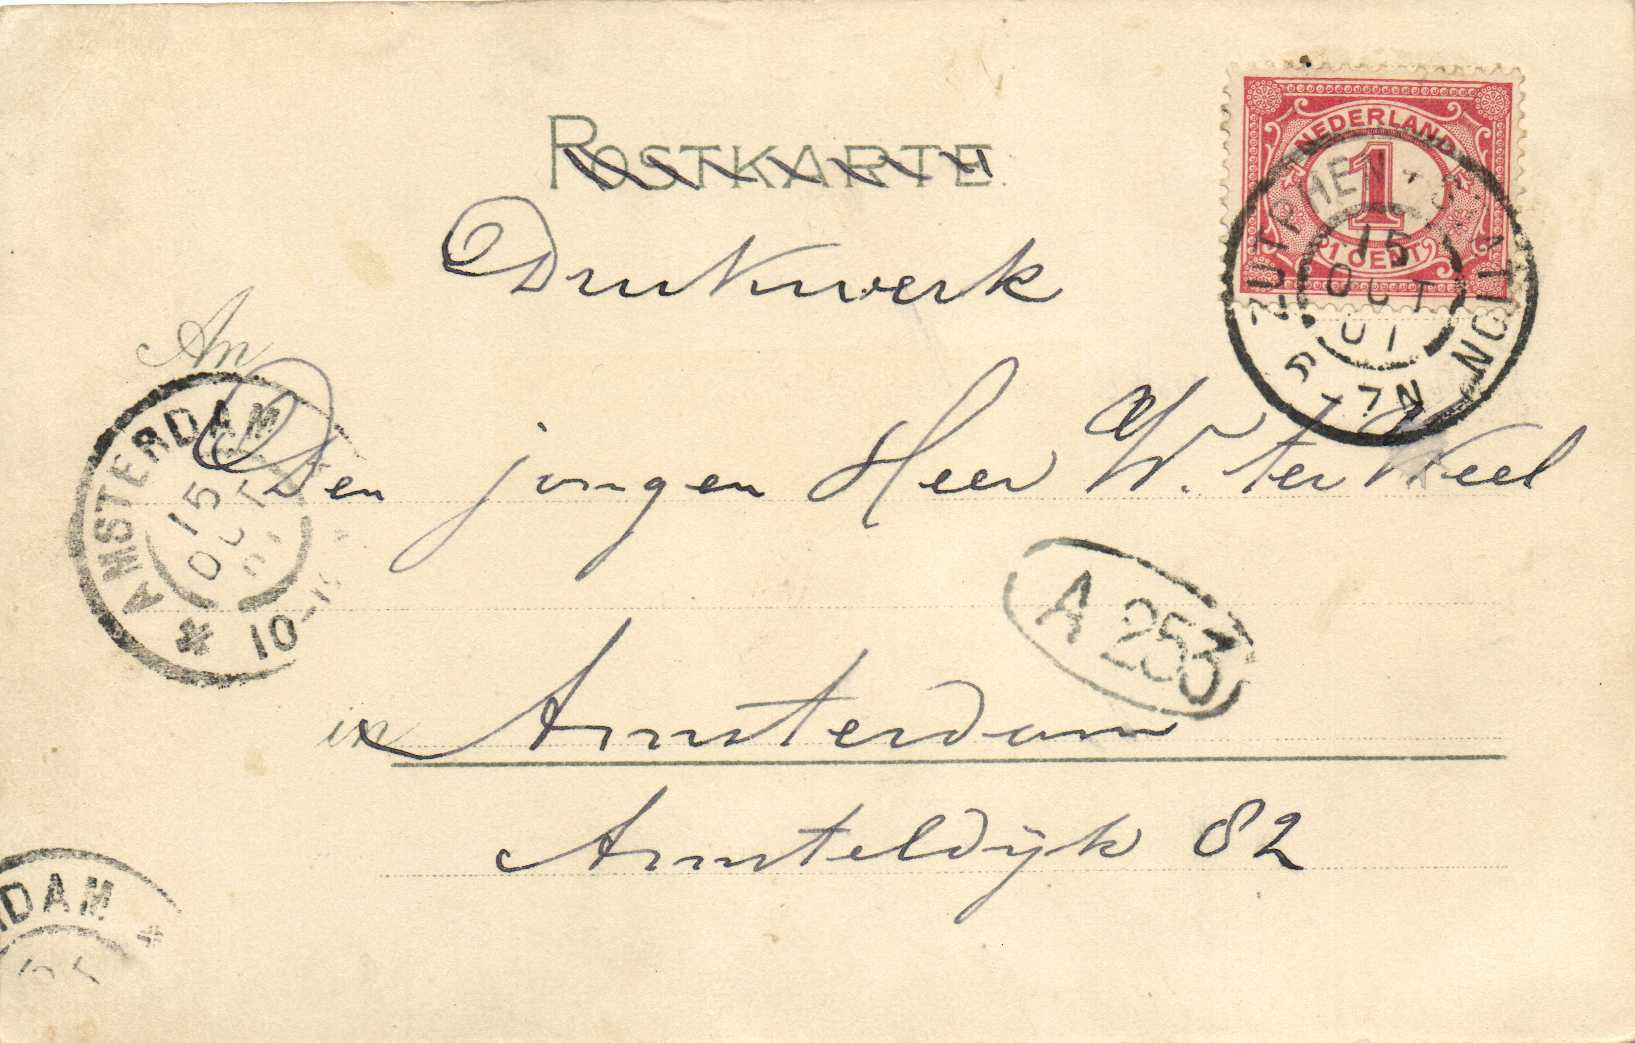 POSTKARTE.
NEDERLAND
1
1 CENT
ZUTPHEN-STATION
15
OCT
01
Drukwerk
An
AMSTERDAM
15
OCT
01
10-
Den jongen Heer W. ter Weel
A 253
in Amsterdam
Amsteldijk 82
DAM